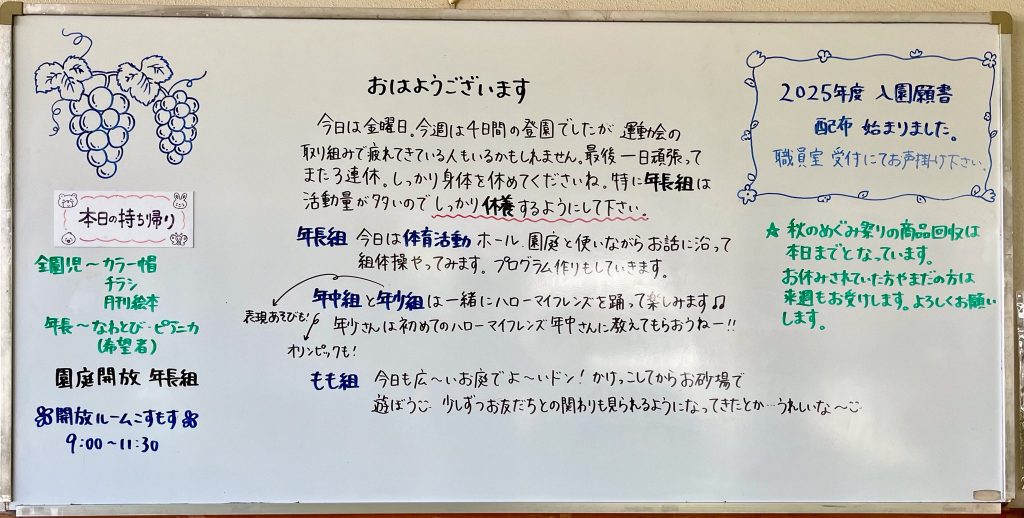 おはようございます
今日は金曜日。今週は4日間の登園でしたが 運動会の
取り組みで疲れてきている人もいるかもしれません。最後一日頑張って
また3連休。しっかり身体を休めてくださいね。特に年長組は
活動量が多いのでしっかり休養するようにして下さい。
年長組 今日は体育活動 ホール、園庭と使いながらお話に沿って
組体操やってみます。プログラム作りもしていきます。
年中組と年少組は一緒にハローマイフレンズを踊って楽しみます♫
表現あそびも!
年少さんは初めてのハローマイフレンズ年中さんに教えてもらおうねー!!
オリンピックも!
もも組 今日も広〜いお庭でよ〜いドン!かけっこしてからお砂場で
遊ぼう 少しずつお友だちとの関わりも見られるようになってきたとか…うれしいな〜
本日の持ち帰り
全園児〜カラー帽
チラシ
月刊絵本
年長〜なわとび・ピアニカ
(希望者)
園庭開放 年長組
開放ルームこすもす
9:00〜11:30
2025年度 入園願書
配布 始まりました。
職員室 受付にてお声掛け下さい。
★ 秋のめぐみ祭りの商品回収は
本日までとなっています。
お休みされていた方やまだの方は
来週もお受けします。よろしくお願い
します。